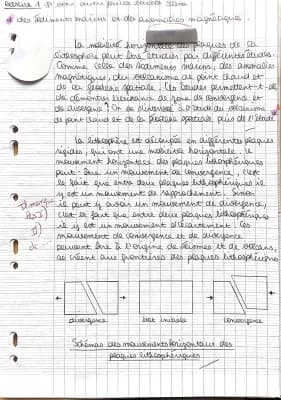 Exercice 1
des sédiments marins et des anomalies magnétiques.
La mobilité horizontale des plaques de la
lithosphère peut être étudiée par différentes études.
Comme celle des sédiments marins, des anomalies
magnétiques, des volcanisme de point chaud et
de la géodésie spatiale. Ces études permettent-t-elle
de démontrer l'existence de zone de convergence et
de divergence ? On s'intéresse à l'étude du volcanisme
de point chaud et de la géodésie spatiale puis de l'étude
La lithosphère est découpée en différentes plaques
rigides, qui ont une mobilité horizontale. le
mouvement horizontale des plaques lithosphérique
peut être un mouvement de convergence, c'est
le fait que entre deux plaques lithosphérique il
y est un mouvement de rapprochement. Sinon
il peut y avoir un mouvement de divergence,
c'est le fait que entre deux plaques lithosphérique
il y est un mouvement d'écartement. Ces
mouvement de convergence et de divergence
peuvent être à l'origine de séismes et de volcans,
se créent aux frontières des plaques lithosphériques
divergence état initiale convergence
Schémas des mouvements horizontaux des
plaques lithosphériques